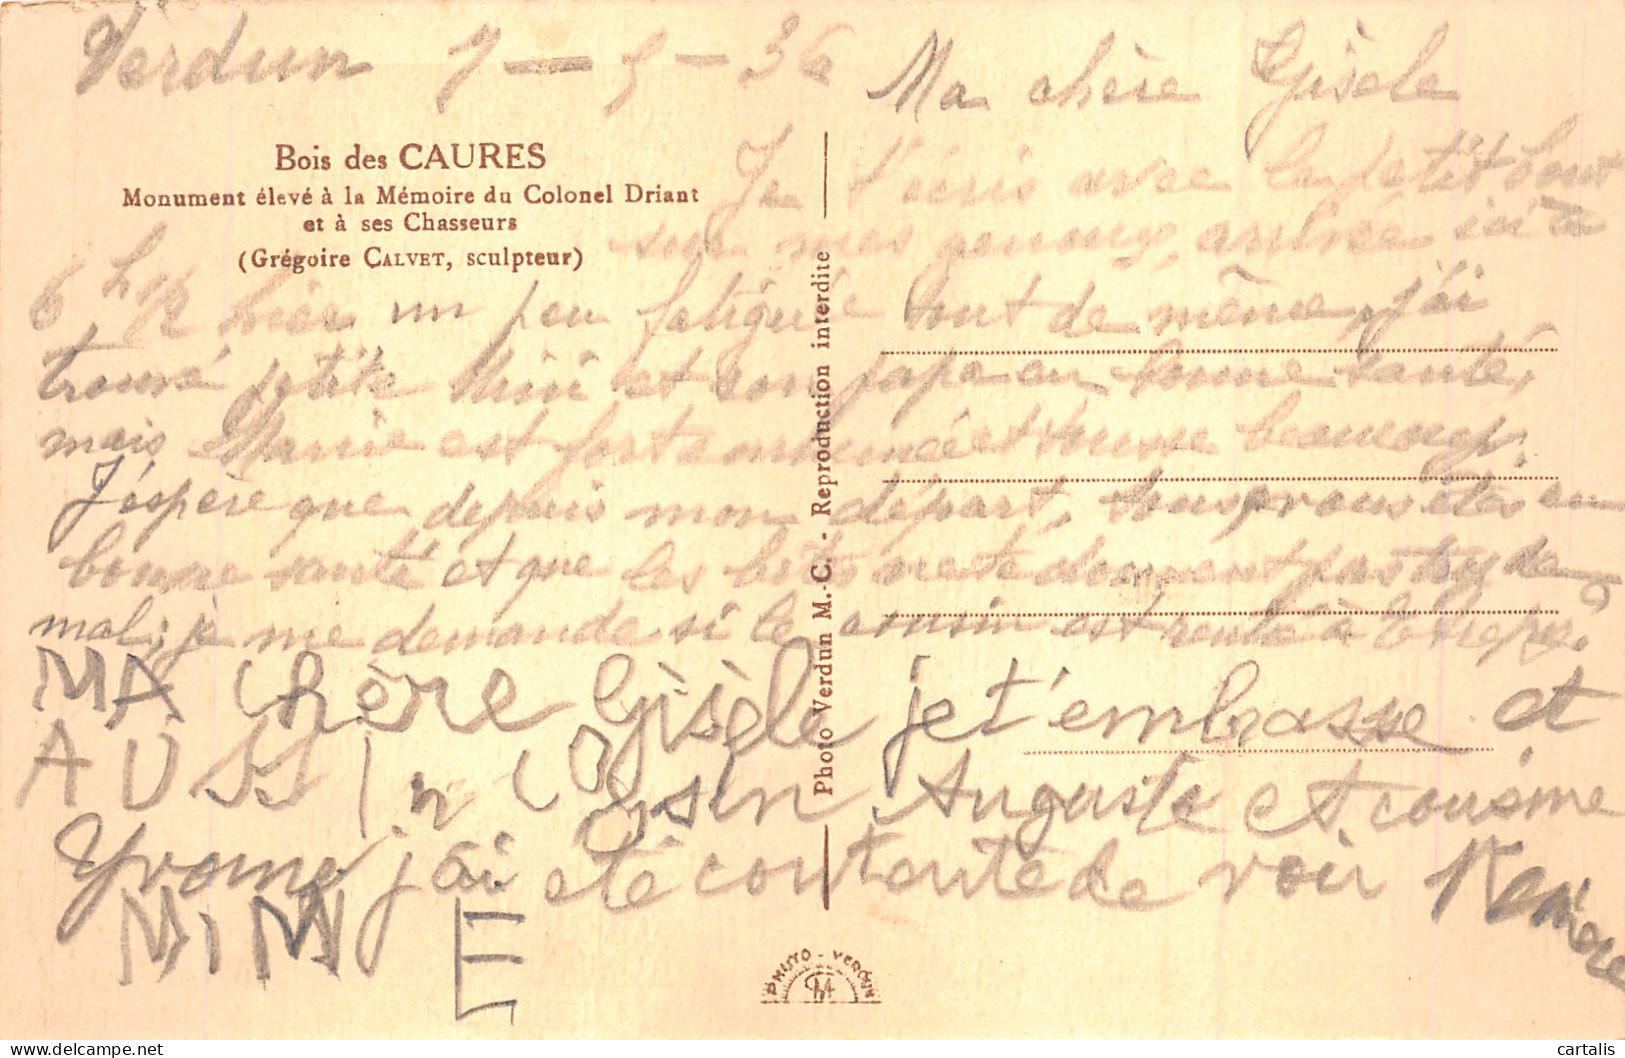 Verdun 7-5-36
Ma chère Gisèle
Bois des CAURES
Monument élevé à la Mémoire du Colonel Driant
et à ses Chasseurs
(Grégoire CALVET, sculpteur)
Je t'écris avec le petit bout
sur mes genoux, arrivée ici à
6 h 1/2 hier un peu fatiguée tout de même, j'ai
trouvé petite Mimi et son papa en bonne santé,
mais Marie est fort enrhumée et tousse beaucoup.
J'espère que depuis mon départ, tous vous êtes en
bonne santé et que les bêtes ne te donnent pas trop de
mal; je me demande si le cousin est rentré à
MA Chère Gisèle je t'embrasse et
AUSSI cousin Auguste et cousine
Yvonne j'ai été contente de voir
MiMIE
Photo Verdun M.-C. - Reproduction interdite
PHOTO - VERDUN